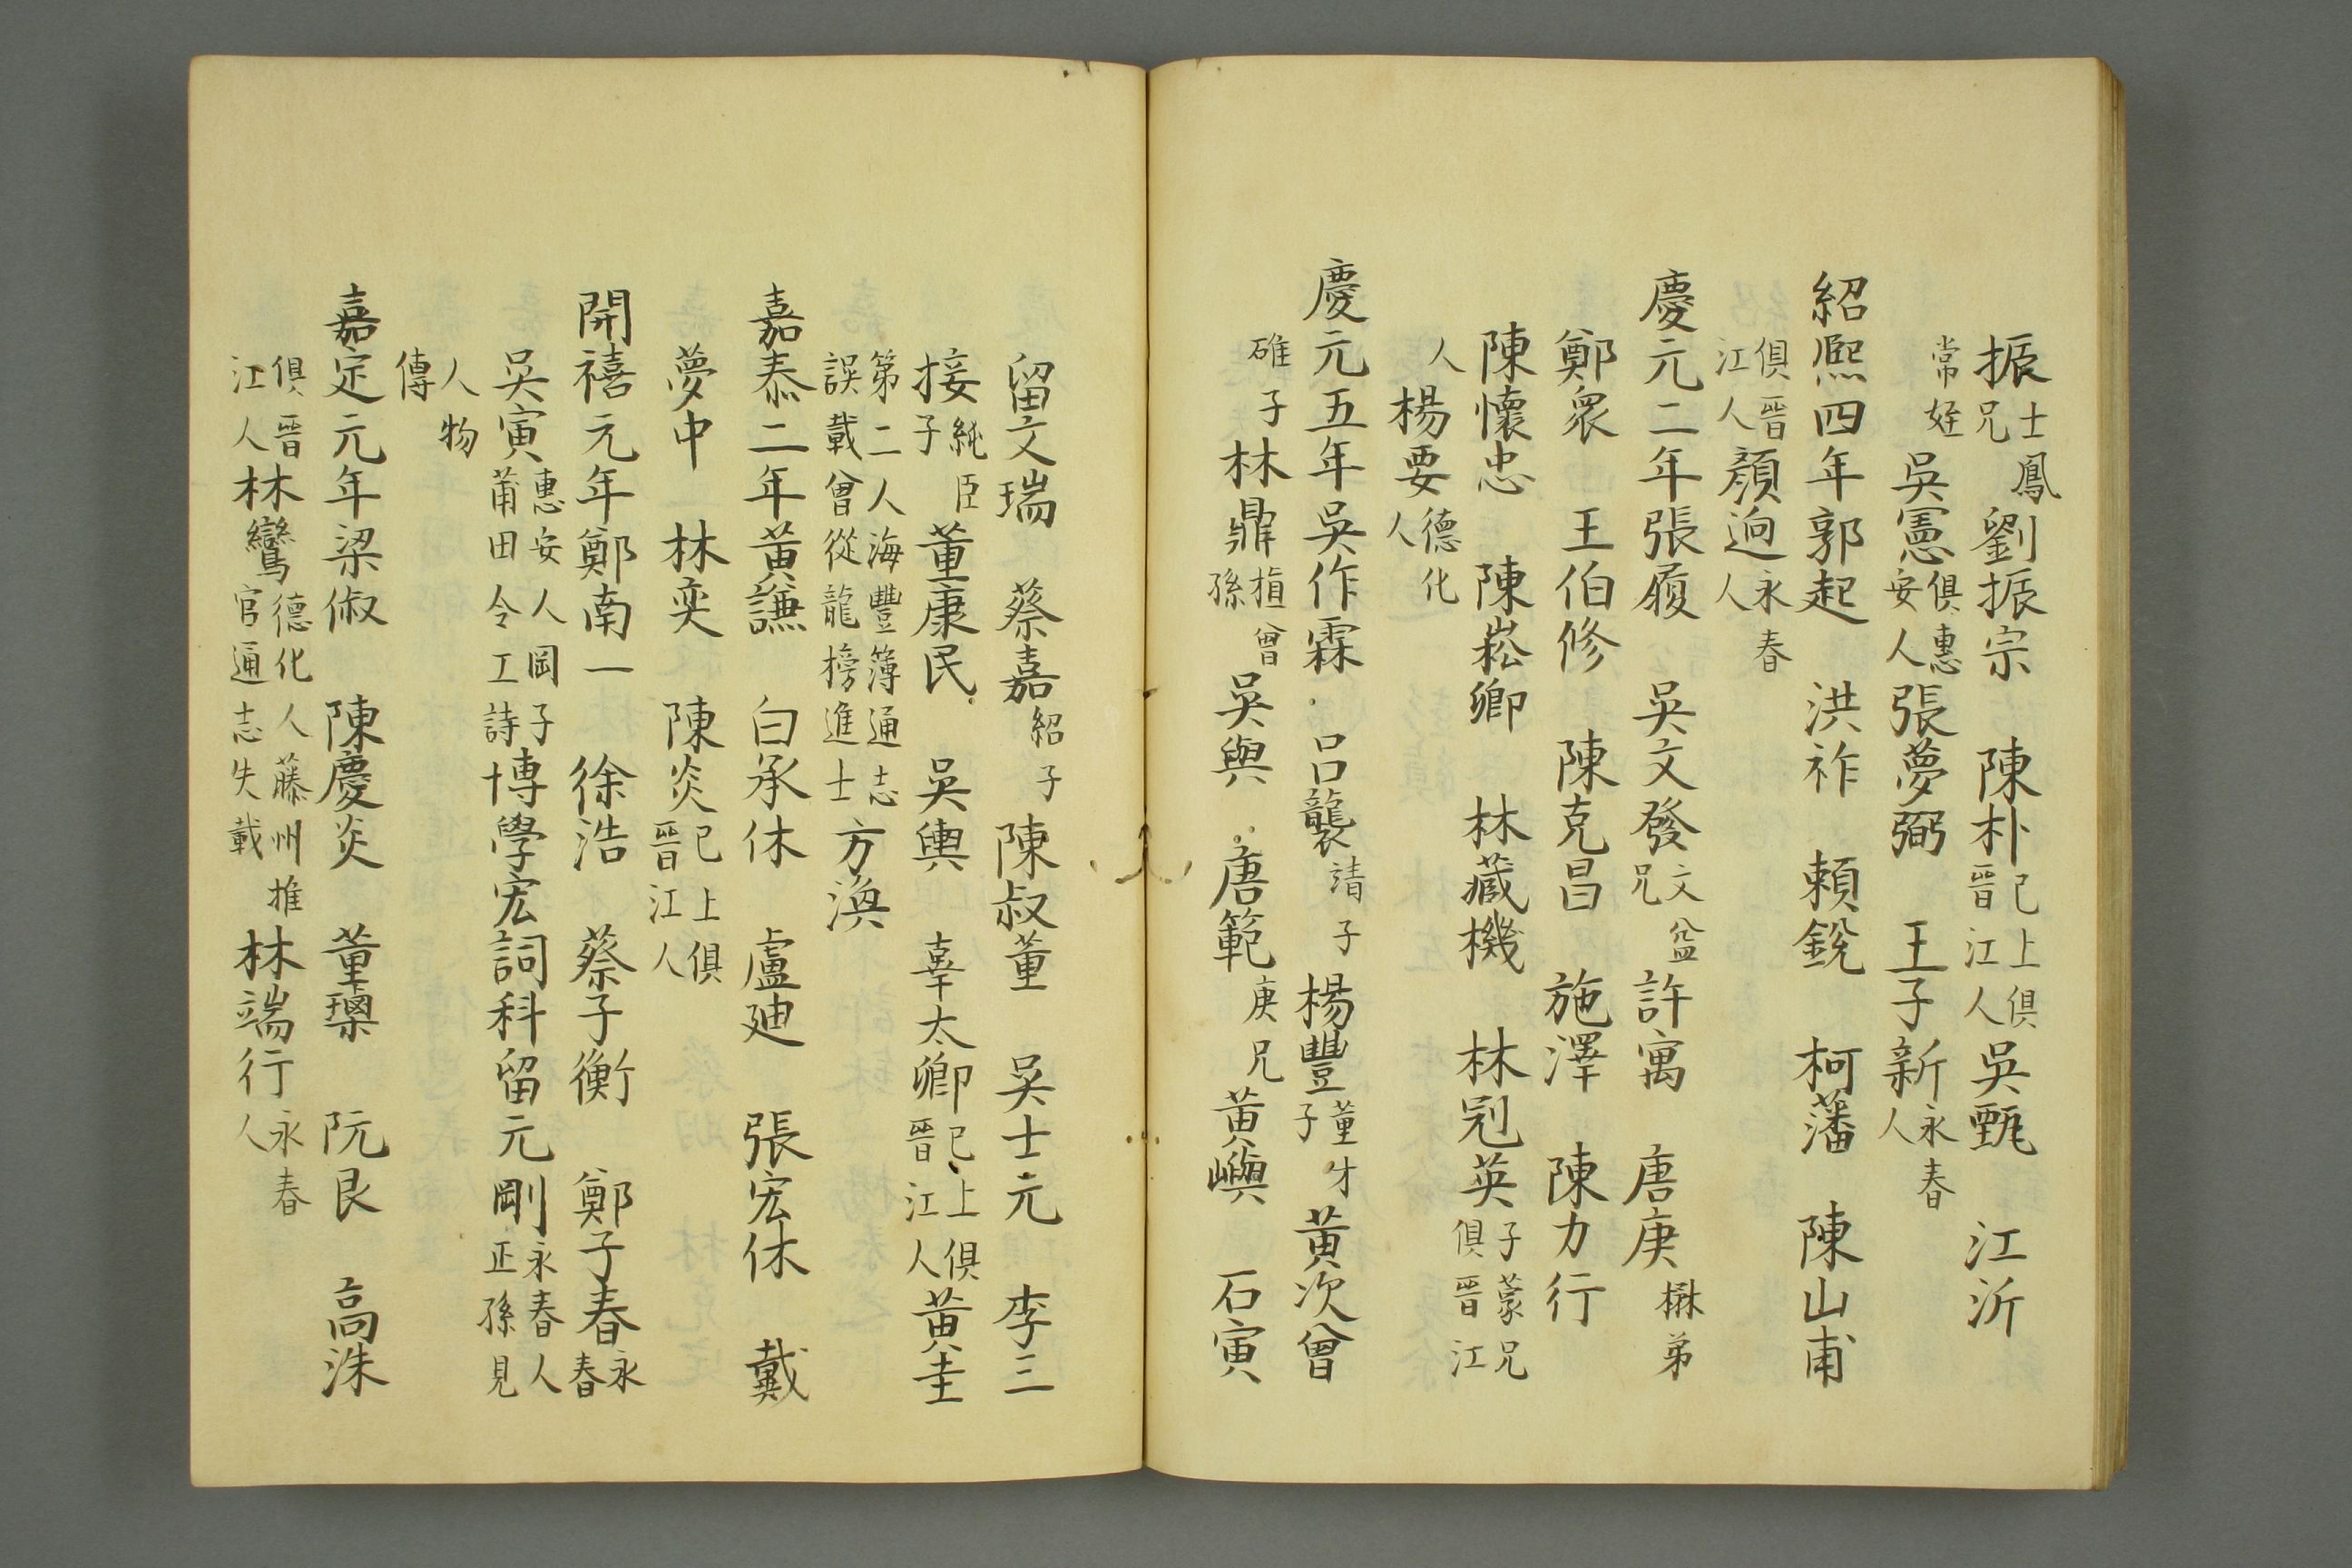 振士鳳兄劉振宗　陳朴已上俱晉江人吳甄　江沂
常姪　吳憲俱惠安人張夢弼　王子新永春人
紹熙四年郭起　洪祚　賴銳　柯藩　陳山甫
俱晉江人顏逈永春人
慶元二年張履　吳文發文盆兄許寓　唐庚楙弟
鄭衆　王伯修　陳克昌　施澤　陳力行
陳懷忠　陳崧卿　林藏機　林冠英子蒙兄俱晉江
人　楊要德化人
慶元五年吳作霖　呂襲請子楊豐董子黃次曾
確子林鼎植曾孫吳與　唐範庚兄黃嶼　石寅
留文瑞　蔡嘉紹子陳叔董　吳士元　李三
接純臣子董康民　吳輿　辜太卿已上俱晉江人黃圭
第二人海豐簿通志誤載曾從龍榜進士方渙
嘉泰二年黃謙　白承休　盧廸　張宏休　戴
夢中　林奕　陳炎已上俱晉江人
開禧元年鄭南一　徐浩　蔡子衡　鄭子春永春
吳寅惠安人岡子莆田令工詩博學宏詞科留元剛永春人正孫見
人物傳
嘉定元年梁俶　陳慶炎　董㻎　阮艮　高洙
俱晉江人林鸞德化人藤州推官通志失載林端行永春人